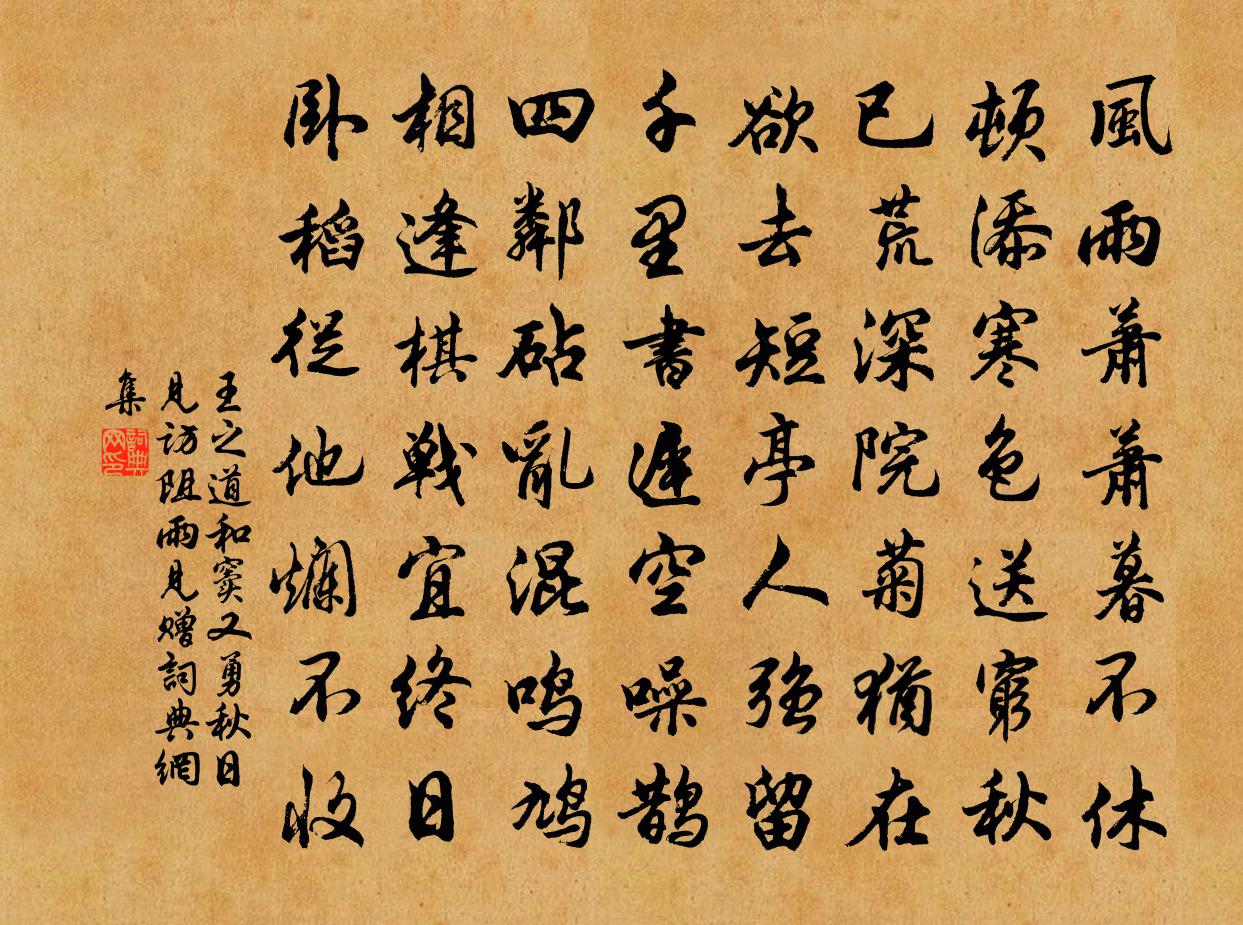 風雨蕭蕭暮不休
頓添寒色送窮秋
已荒深院菊猶在
欲去短亭人強留
千里書遲空噪鵲
四鄰砧亂混鳴鳩
相逢棋戰宜終日
臥稻從他爛不收
王之道和竇又勇秋日
見訪阻雨見贈詞典網
集
詞典
网印